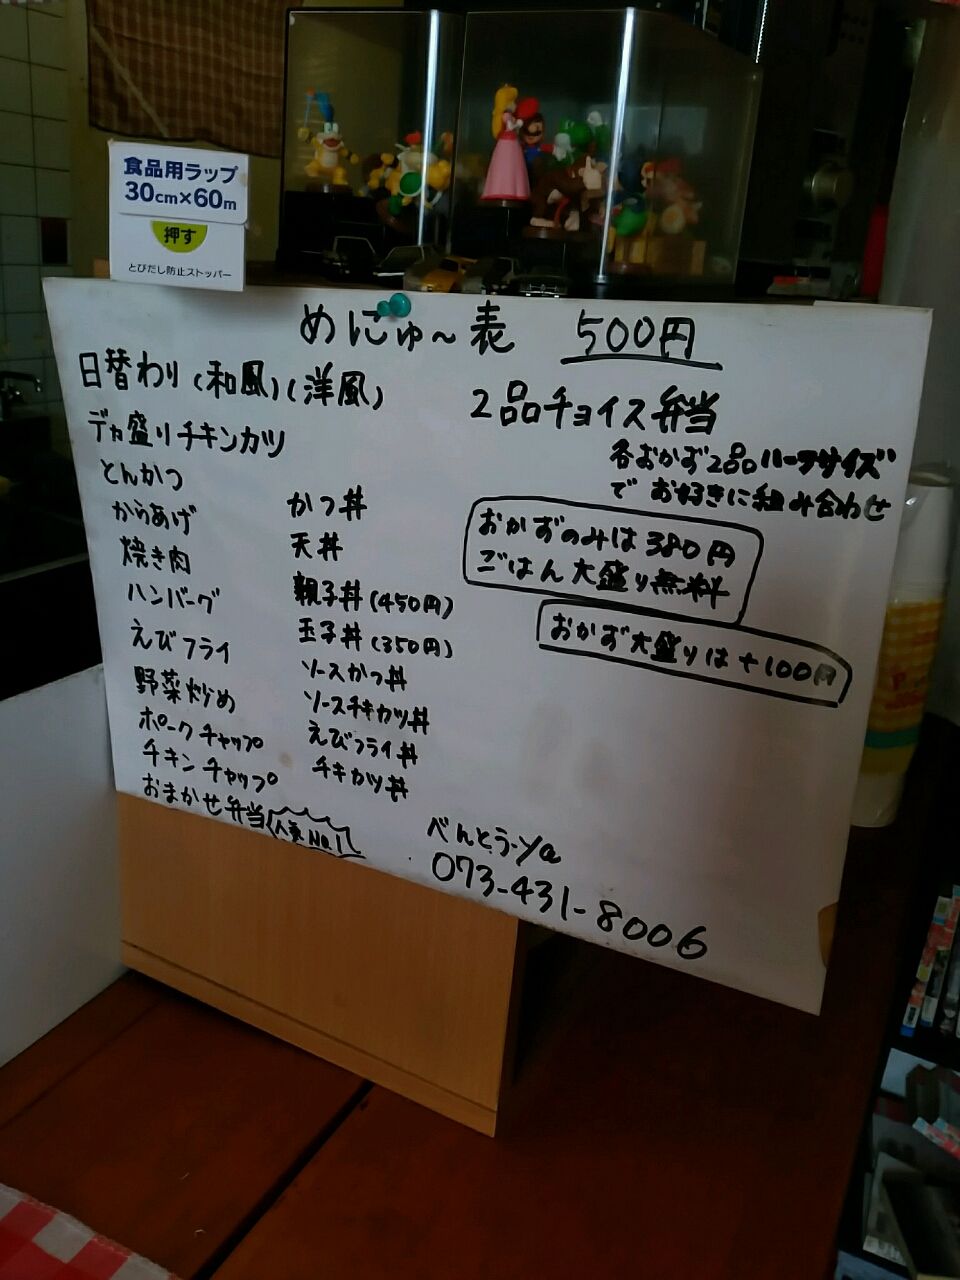 食品用ラップ
30cm×60m
押す
とびだし防止ストッパー
めにゅ〜表 500円
日替わり(和風)(洋風)
デカ盛りチキンカツ
とんかつ
からあげ
焼き肉
ハンバーグ
えびフライ
野菜炒め
ポークチャップ
チキンチャップ
おまかせ弁当 人気No.1
かつ丼
天丼
親子丼(450円)
玉子丼(350円)
ソースかつ丼
ソースチキカツ丼
えびフライ丼
チキカツ丼
2品チョイス弁当
各おかず2品ハーフサイズ
でお好きに組み合わせ
おかずのみは380円
ごはん大盛り無料
おかず大盛りは+100円
べんとう-Ya
073-431-8006